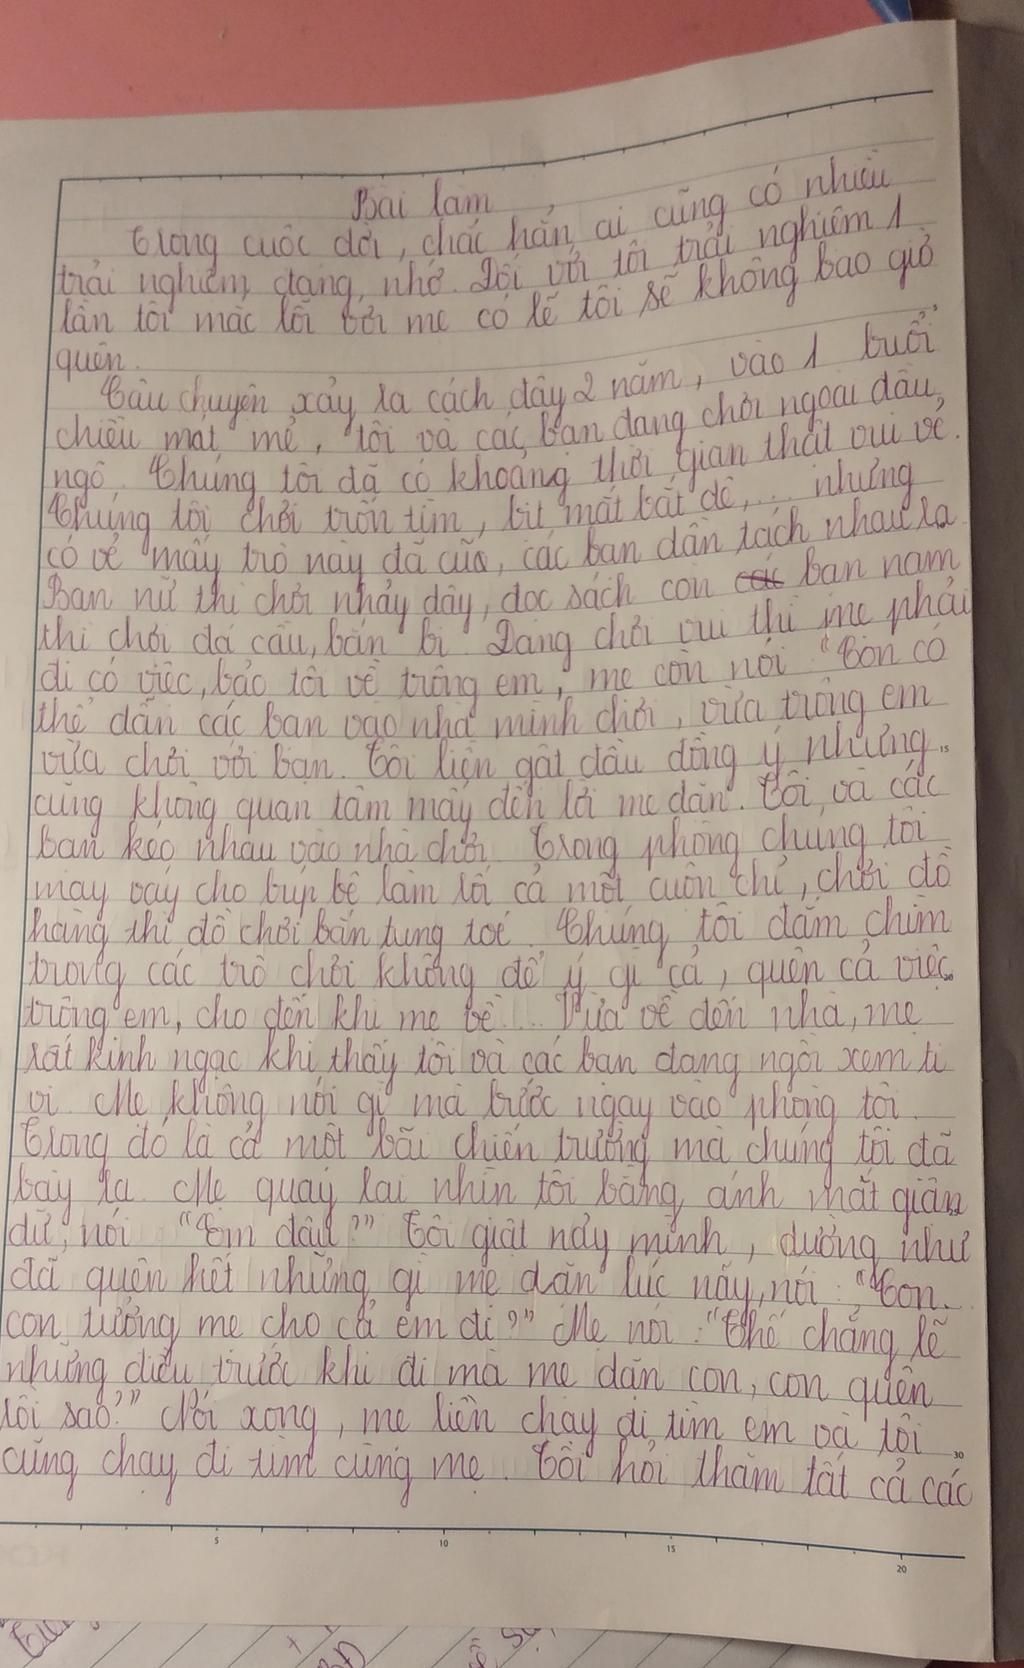 Bài làm
Trong cuộc đời, chắc hẳn ai cũng có nhiều
trải nghiệm đáng nhớ. Đối với tôi trải nghiệm 1
lần tôi mắc lỗi với mẹ có lẽ tôi sẽ không bao giờ
quên.
Câu chuyện xảy ra cách đây 2 năm, vào 1 buổi
chiều mát mẻ, tôi và các bạn đang chơi ngoài đầu
ngõ. Chúng tôi đã có khoảng thời gian thật vui vẻ.
Chúng tôi chơi trốn tìm, bịt mắt bắt dê,... nhưng
có vẻ mấy trò này đã cũ, các bạn dần tách nhau ra
Bạn nữ thì chơi nhảy dây, đọc sách còn bạn nam
thì chơi đá cầu, bắn bi. Đang chơi vui thì mẹ phải
đi có việc, bảo tôi về trông em, mẹ còn nói "Con có
thể dẫn các bạn vào nhà mình chơi, vừa trông em
vừa chơi với bạn. Tôi liền gật đầu đồng ý nhưng
cũng không quan tâm mấy đến lời mẹ dặn. Tôi và các
bạn kéo nhau vào nhà chơi. Trong phòng chúng tôi
may váy cho búp bê làm rối cả một cuộn chỉ, chơi đồ
hàng thì đồ chơi bắn tung toé. Chúng tôi đắm chìm
trong các trò chơi không để ý gì cả, quên cả việc
trông em, cho đến khi mẹ về... Vừa về đến nhà, mẹ
rất kinh ngạc khi thấy tôi và các bạn đang ngồi xem ti
vi. Mẹ không nói gì mà bước ngay vào phòng tôi.
Trong đó là cả một bãi chiến trường mà chúng tôi đã
bày ra. Mẹ quay lại nhìn tôi bằng ánh mắt giận
dữ, nói "Em đâu?" Tôi giật nảy mình, dường như
đã quên hết những gì mẹ dặn lúc nãy, nói: "Con..
con tưởng mẹ cho cả em đi?" Mẹ nói: "Thế chẳng lẽ
những điều trước khi đi mà mẹ dặn con, con quên
rồi sao?" Nói xong, mẹ liền chạy đi tìm em và tôi
cũng chạy đi tìm cùng mẹ. Tôi hỏi thăm tất cả các
5 10 15 20